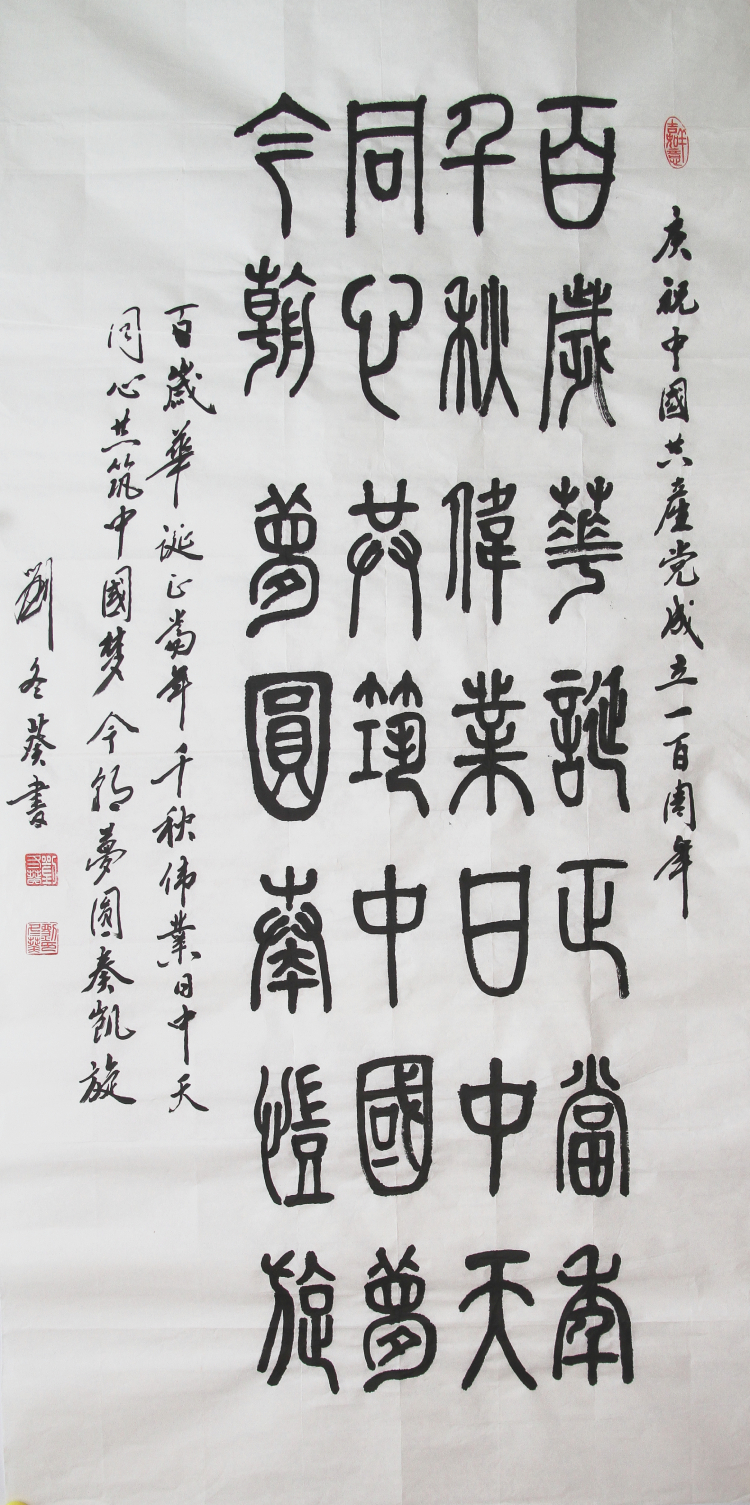 庆祝中國共產党成立一百周年
百歲華誕正當年
千秋偉業日中天
同心共筑中國夢
今朝夢圓奏愷旋
百歲華诞正當年千秋伟業日中天
同心共筑中國梦今朝夢圆奏凯旋
劉冬葵書